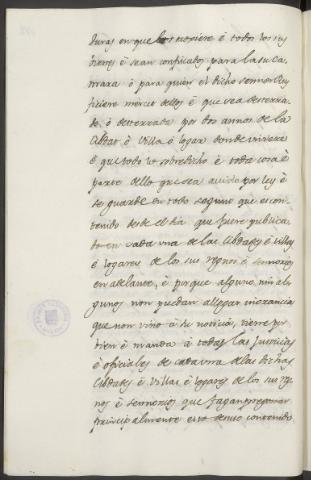 duras en que los
bienes é sean confiscados para la su ca
mara ó para quien el dicho sennor Rey
ficiere merced dellos é que sea desterra
do, ó desterrada por dos annos de la
Cibdat é Villa é logar donde viviere
é que todo lo sobredicho é toda cosa é
parte dello que sea avida por ley é
se guarde en todo segunt que es con
tenido desde el dia que fuere publica
do en cada una de las Cibdades é Villas
é logares de los sus regnos é sennorios
en adelante, é porque alguno, nin al
gunos non puedan allegar inorancia
que non vino á su noticia, tiene por
bien é manda á todas las Justicias
é oficiales de cada una de las dichas
Cibdades é Villas é logares de los sus reg
nos é sennorios que fagan pregonar
principalmente esto desuso contenido